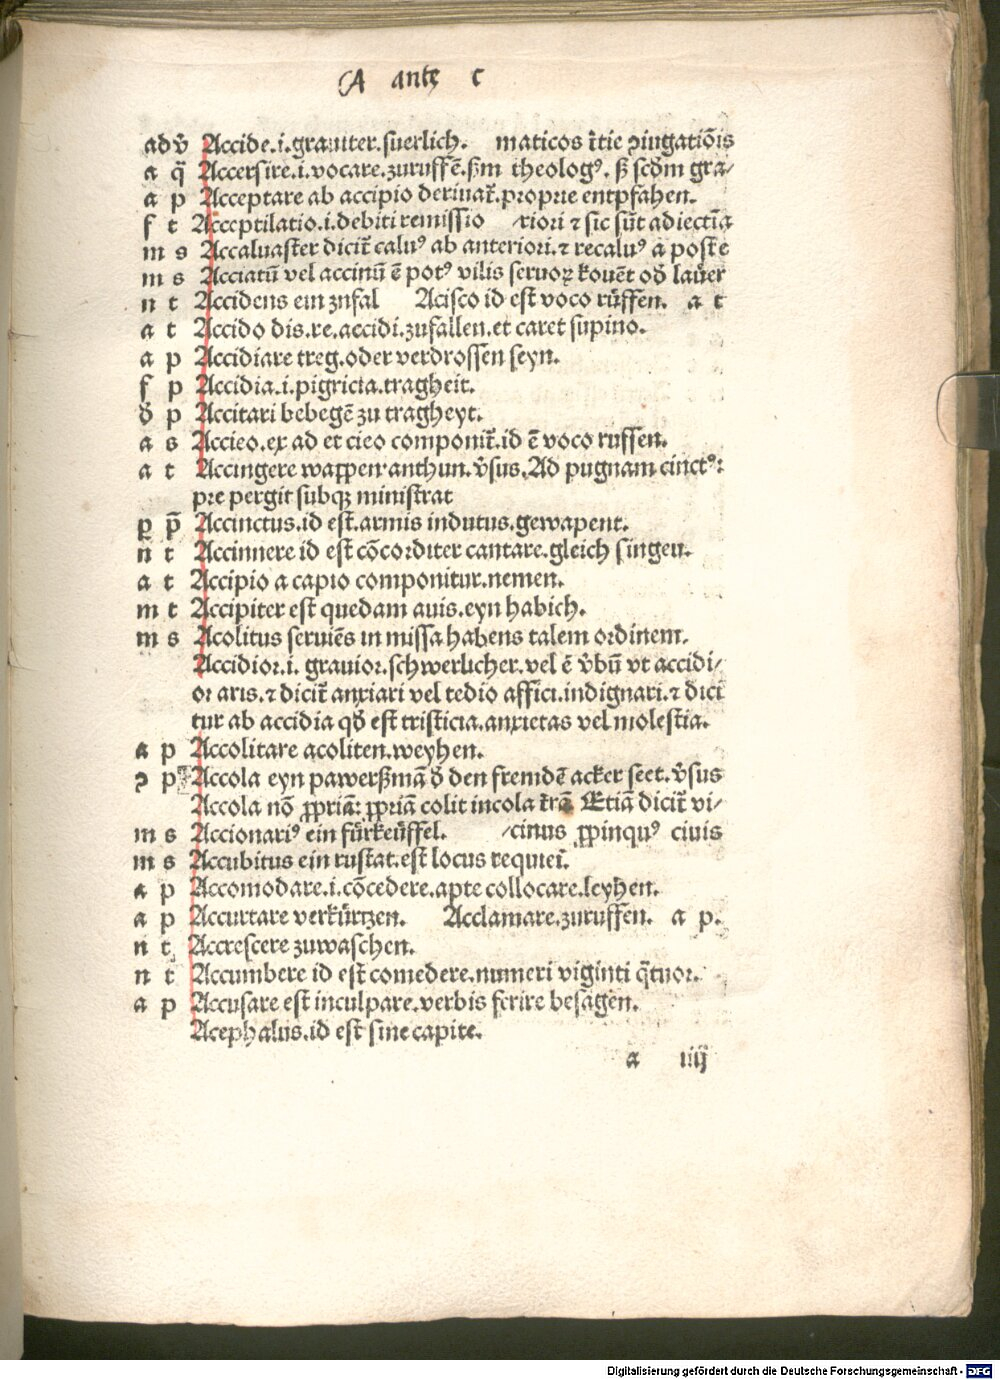 A ante c
adv̄ Accide.i.grauiter.suerlich. maticos t̄tie ꝯiugatiōis
a q̄ Accersire.i.vocare.zuruffē.ßm theologꝰ. ß scd̄m gra⸗
a p Acceptare ab accipio deriuat̄.proprie entpfahen.
f t Acceptilatio.i.debiti remissio ⸗riori ⁊ sic sūt adiectiā
m s Accaluaster dicit̄ caluꝰ ab anteriori.⁊ recaluꝰ a poste
m s Acciatū vel accinū ē potꝰ vilis seruoꝝ kouēt od̄ laűer
n t Accidens ein znfal Acisco id est voco růffen. a t
a t Accido dis.re.accidi.zufallen.et caret supino.
a p Accidiare treg.oder verdrossen seyn.
f p Accidia.i.pigricia.tragheit.
d̄ p Accitari bebegē zu tragheyt.
a s Accieo.ex ad et cieo componit̄.id ē voco ruffen.
a t Accingere wappen anthun.v̄sus.Ad pugnam cinctꝰ:
pre pergit subqꝫ ministrat
ꝑ p̄ Accinctus.id est.armis indutus.gewapent.
n t Accinnere id est cōcorditer cantare.gleich singen.
a t Accipio a capio componitur.nemen.
m t Accipiter est quedam auis.eyn habich.
m s Acolitus seruiēs in missa habens talem ordinem.
Accidior.i. grauior.schwerlicher.vel ē v̄bū vt accidi⸗
or aris.⁊ dicit̄ anxiari vel tedio affici.indignari.⁊ dici
tur ab accidia qd̄ est tristicia.anxietas vel molestia.
a p Accolitare acoliten.weyhen.
ꝯ p Accola eyn pawerßmā d̄ den fremdē acker seet.v̄sus
Accola nō ꝓpriā: ꝓpriā colit incola t̄rā Etiā dicit̄ vi⸗
m s Accionariꝰ ein fürkeüffel. ⸗cinus ꝓpinquꝰ ciuis
m s Accubitus ein rustat.est locus requiei.
a p Accomodare.i.cōcedere.apte collocare.leyhen.
a p Accurtare verkürtzen. Acclamare.zuruffen. a p.
n t Accrescere zuwaschen.
n t Accumbere id est comedere.numeri viginti q̄tuor.
a p Accusare est inculpare.verbis ferire besagen.
Acephalus.id est sine capite.
a iiij
Digitalisierung gefördert durch die Deutsche Forschungsgemeinschaft - DFG